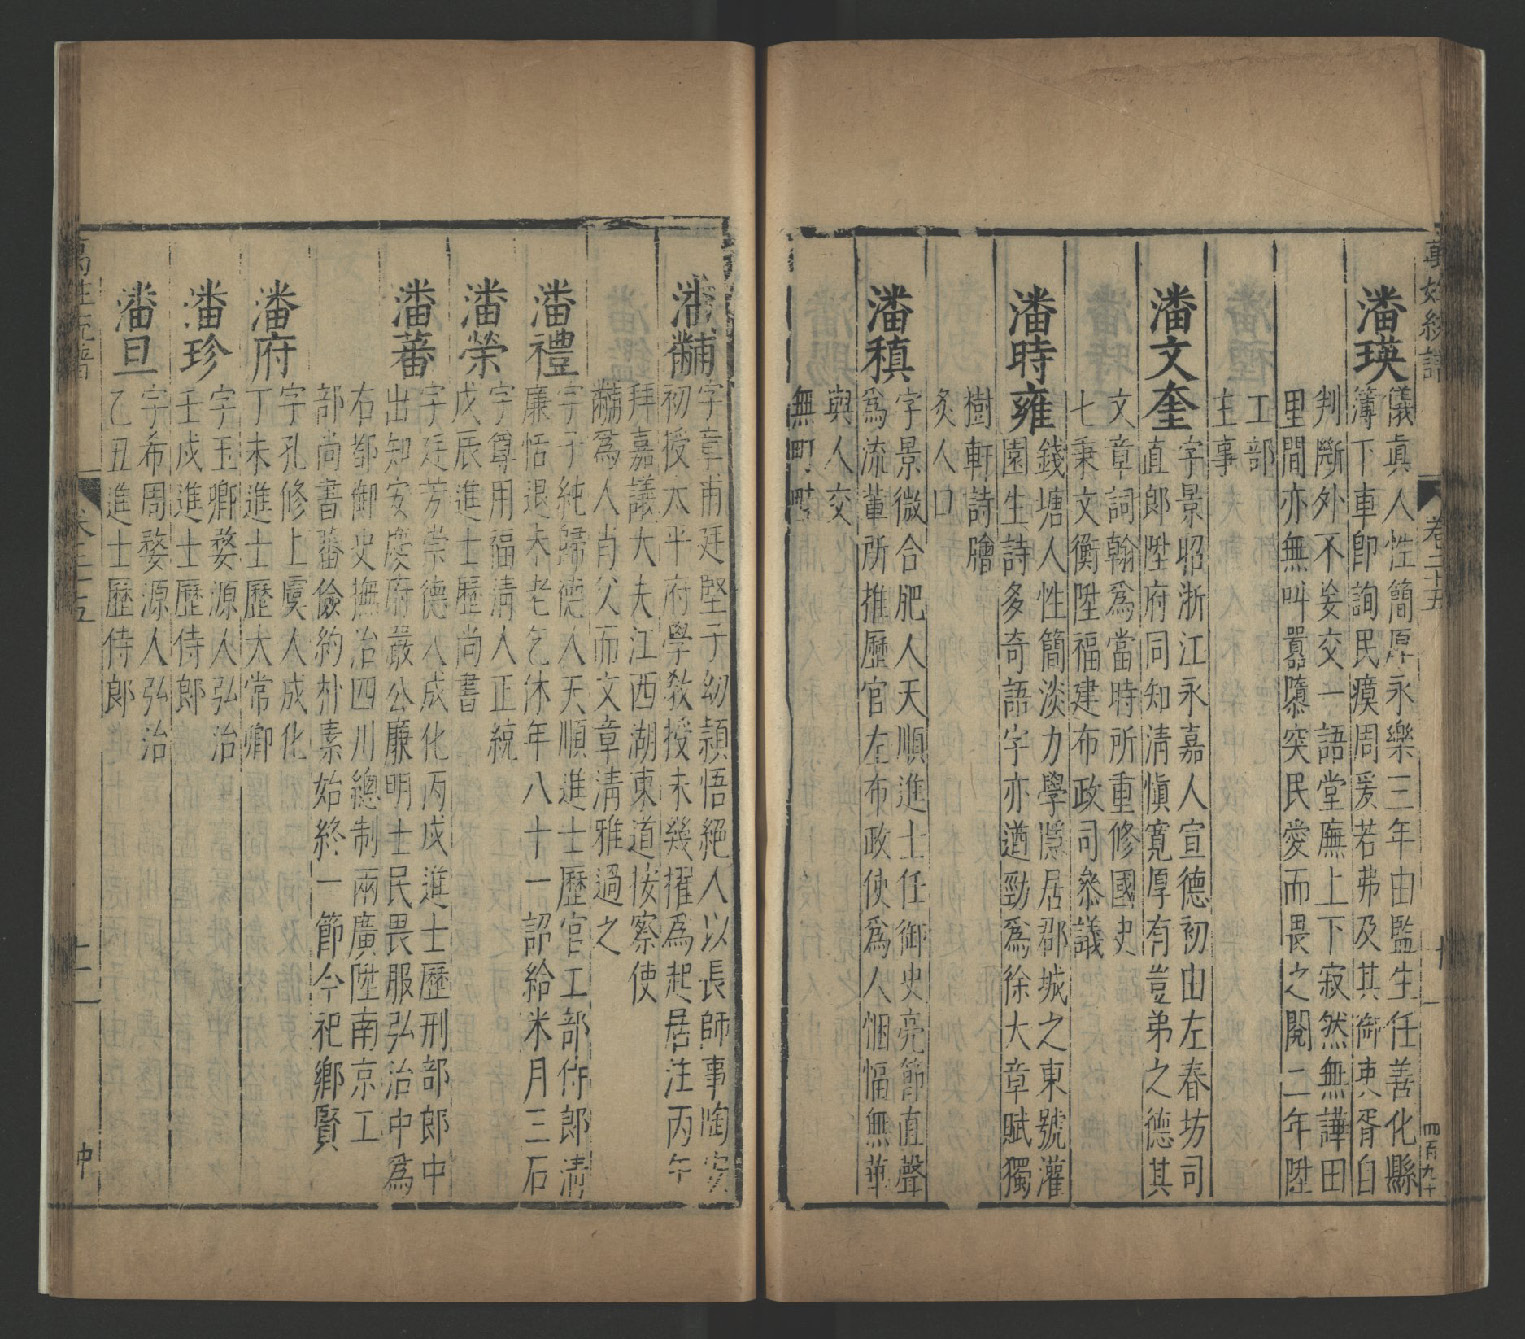 潘瑛
儀真人性簡厚永樂三年由監生任善化縣
簿下車即詢民瘼周爰若弗及其衙吏胥自
判斷外不妄交一語堂廡上下寂然無譁田
里間亦無叫囂隳突民愛而畏之閱二年陞
工部
主事
潘文奎
字景昭浙江永嘉人宣德初由左春坊司
直郎陞府同知清慎寬厚有豈弟之德其
文章詞翰為當時所重修國史
七秉文衡陞福建布政司叅議
潘時雍
錢塘人性簡淡力學隱居郡城之東號灌
園生詩多奇語字亦遒勁為徐大章賦獨
樹軒詩膾
炙人口
潘稹
字景微合肥人天順進士任御史亮節直聲
為流輩所推歷官左布政使為人悃愊無華
與人交
無町畦
卷二十五
四百九十
潘黼
字章甫廷堅子幼頴悟絕人以長師事陶安
初授太平府學教授未幾擢為起居注丙午
拜嘉議大夫江西湖東道按察使
黼為人肖父而文章清雅過之
潘禮
字子純歸德人天順進士歷官工部侍郎清
廉恬退夫老乞休年八十一詔給米月三石
潘榮
字尊用福清人正統
戊辰進士歷尚書
潘蕃
字廷芳崇德人成化丙戌進士歷刑部郎中
出知安慶府嚴公廉明士民畏服弘治中為
右都御史撫治四川總制兩廣陞南京工
部尚書蕃儉約朴素始終一節今祀鄉賢
潘府
字孔修上虞人成化
丁未進士歷大常卿
潘珍
字玉卿婺源人弘治
壬戌進士歷侍郎
潘旦
字希周婺源人弘治
乙丑進士歷侍郎
萬姓統譜
卷二十五